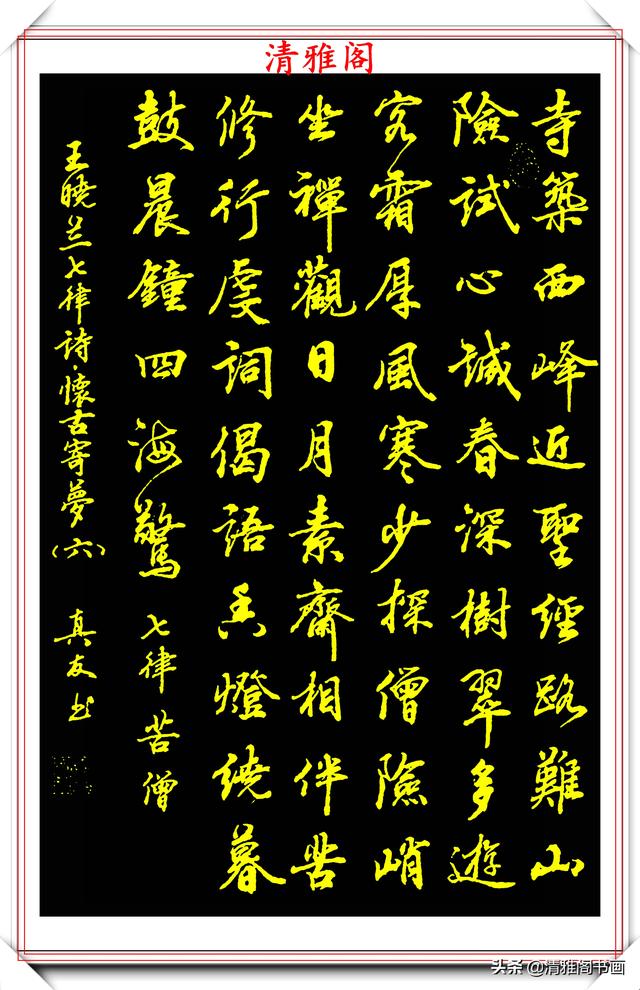 清雅阁
寺築西峰近聖經路難山
險試心誠春深樹翠多遊
客霜厚風寒少探僧險峭
坐禪觀日月素齋相伴苦
修行虔詞偈語香燈繞暮
鼓晨鐘四海驚 七律苦僧
王曉兰七律詩·懷古寄夢(六) 真友书
头条 @清雅阁书画